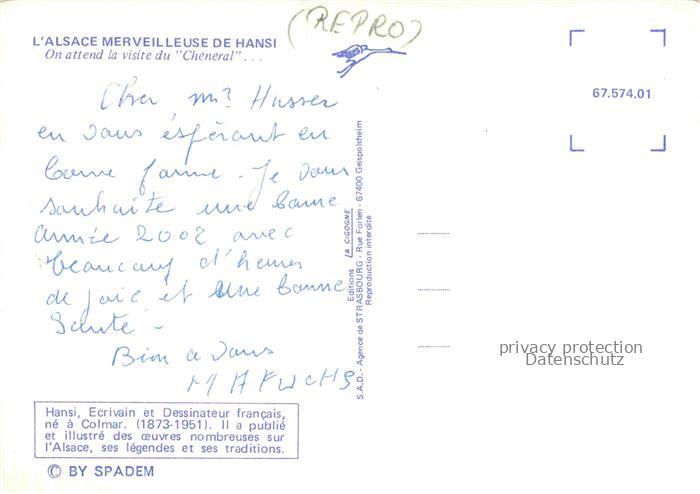 (REPRO)
L'ALSACE MERVEILLEUSE DE HANSI
On attend la visite du "Chénéral"...
67.574.01
Cher mr Husser
en vous éspérant en
bonne forme - Je vous
souhaite une bonne
année 2002 avec
beaucoup d'heures
de joie et une bonne
Santé -
Bien a vous
Editions LA CIGOGNE
S.A.D. - Agence de STRASBOURG - Rue Forlen - 67400 Geispolsheim
Reproduction interdite
privacy protection
Datenschutz
Hansi, Ecrivain et Dessinateur français,
né à Colmar. (1873-1951). Il a publié
et illustré des œuvres nombreuses sur
l'Alsace, ses légendes et ses traditions.
© BY SPADEM